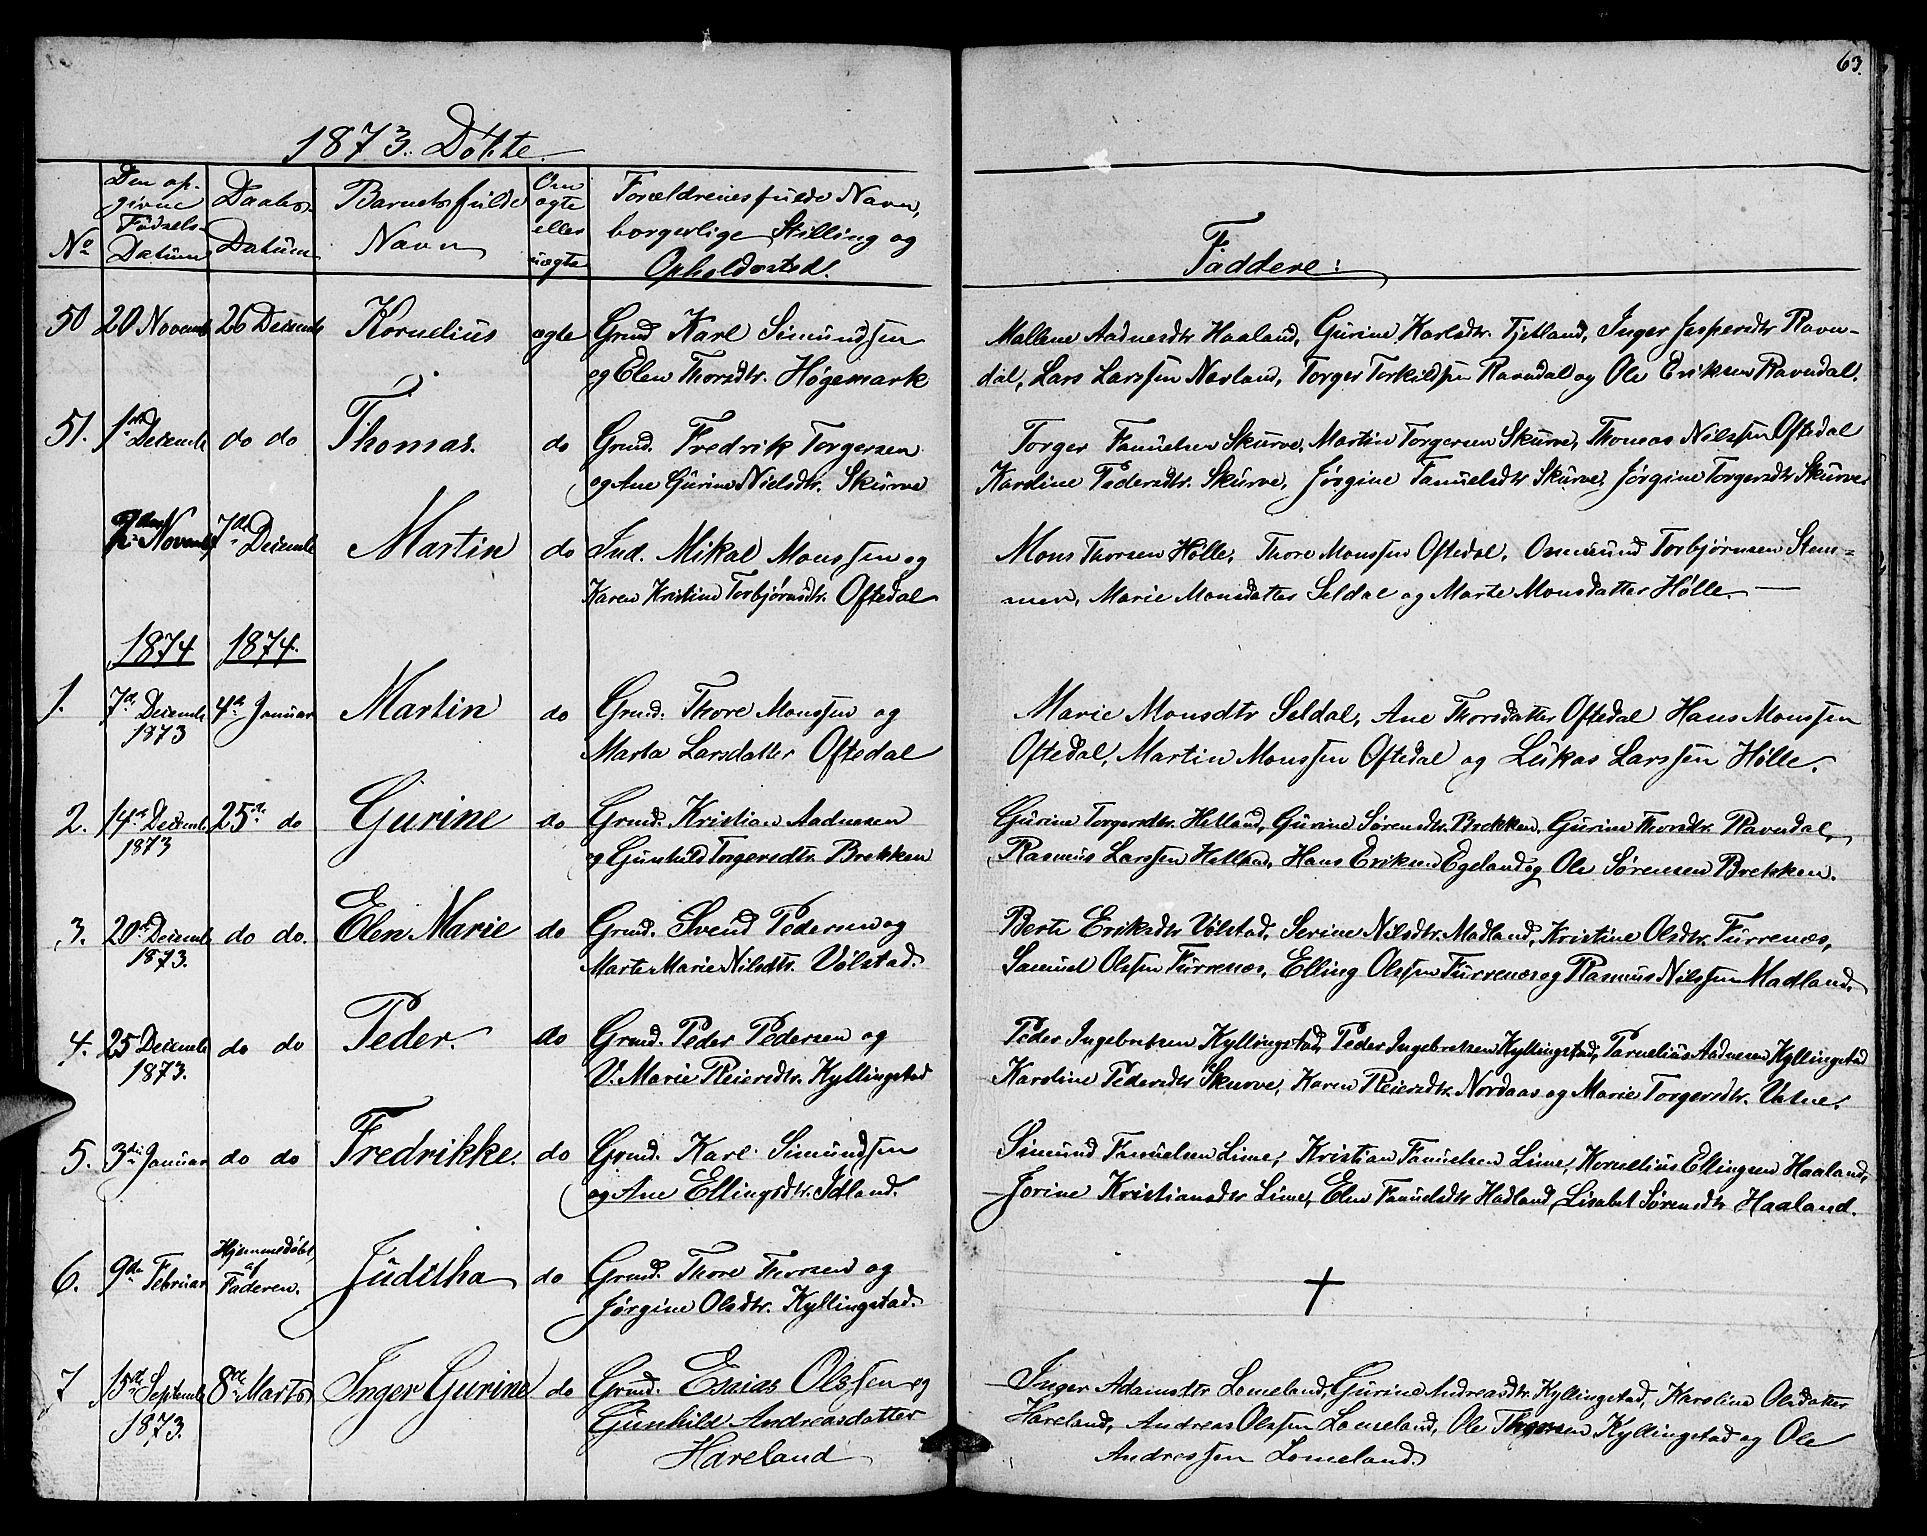 63.
1873. Döbte.
No
Den op-
givne
Fødsels-
Datum
Daabs-
Datum
Barnets fulde
Navn
Om
ægte
eller
uægte
Forældrenes fulde Navn,
borgerlige Stilling og
Opholdssted.
Faddere:
50 20 Novemb 26 Decemb Kornelius ægte Grmd Karl Simundsen
og Elen Thorsdtr. Høgemark
Mallene Aadnesdtr Haaland, Gurine Karlsdtr. Tjetland, Inger Jespersdtr Ravn-
dal, Lars Larssen Nærland, Torger Torkildsen Ravndal og Ole Eriksen Ravndal.
51. 1ste Decemb do do Thomas. do Grmd. Fredrik Torgersen
og Ane Gurine Nielsdtr. Skurve
Torger Tanuelsen Skurve, Martin Torgersen Skurve, Thomas Nilssen Oftedal
Karoline Pedersdtr. Skurve, Jørgine Tanuelsdtr Skurve, Jørgine Torgersdtr Skurve
Novemb 7de Decemb Martin do Ind. Mikal Monssen og
Karen Kristine Torbjørnsdtr. Oftedal
Mons Thorsen Hølle, Thore Monssen Oftedal, Osmund Torbjørnsen Stem-
men, Marie Monsdatter Seldal og Marte Monsdatter Hølle.
1874 1874.
1. 7de Decemb 4de Januar Martin do Grmd. Thore Monssen og
1873
Marta Larsdatter Oftedal
Marie Monsdtr Seldal, Ane Thorsdatter Oftedal Hans Monssen
Oftedal, Martin Monssen Oftedal og Lukas Larssen Hølle.
2. 14de Decemb 25de do Gurine do Grmd. Kristian Aadnesen
1873
og Gunhild Torgersdtr. Brekken
Gurine Torgersdtr. Helland, Gurine Sørensdtr. Brekken, Gurine Thorsdtr. Ravndal,
Rasmus Larssen Helland, Hans Eriksen Egeland og Ole Sørensen Brekken.
3. 20de Decemb do do. Elen Marie do Grmd. Svend Pedersen og
1873.
Marte Marie Nilsdtr. Vølstad.
Berte Eriksdtr Vølstad, Serine Nilsdtr. Madland, Kristine Olsdtr. Furrenæs,
Samuel Olssen Furrenæs, Elling Olssen Furrenæs og Rasmus Nilssen Madland.
4. 25 Decemb do do Peder. do Grmd. Peder Pedersen og
1873.
V. Marie Reiersdtr. Kyllingstad
Peder Ingebretsen Kyllingstad, Peder Ingebretsen Kyllingstad, Tarnelius Aadnesen Kyllingstad
Karoline Pedersdtr Skurve, Karen Reiersdtr. Nordaas og Marie Torgersdtr. Vatne.
5. 3die Januar do do Fredrikke. do Grmd. Karl Simundsen
og Ane Ellingsdtr. Idland.
Simund Tanuelsen Lime, Kristian Tanuelsen Lime, Kornelius Ellingsen Haaland,
Jorine Kristiansdtr Lime, Elen Tanuelsdtr Hadland, Lisabet Sørensdtr Haaland.
6. 9de Februar Hjemmedøbt
af
Faderen. Juditha do Grmd. Thore Thorsen og
Jørgine Olsdtr. Kyllingstad.
7 15de Septemb 8de Marts Inger Gurine do Grmd. Esaias Olssen og
1873.
Gunhild Andreasdatter
Hareland
Inger Adamsdtr Lomeland, Gurine Andreasdtr Kyllingstad, Karoline Olsdatter
Hareland, Andreas Olssen Lomeland, Ole Thorsen Kyllingstad og Ole
Andreassen Lomeland.